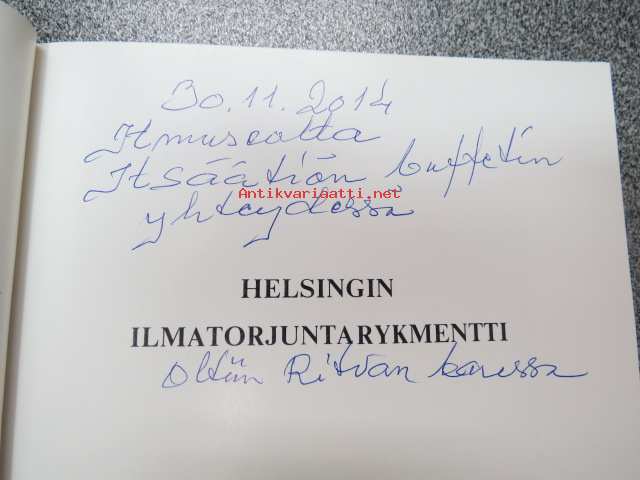 30.11.2014
Itmuseolta
Itsäätiön buffetin
Antikvariaatti.net
yhteydessä
HELSINGIN
ILMATORJUNTARYKMENTTI
Oltiin Ritvan kanssa